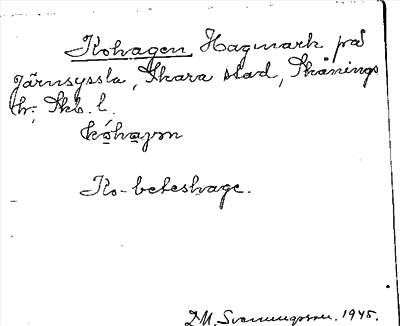 Kohagen, Hagmark på
Järnsyssla, Skara stad, Skånings
hr, Skb. l.
kóhaɡən
Ko-beteshage.
D.M. Svenungsson. 1945.